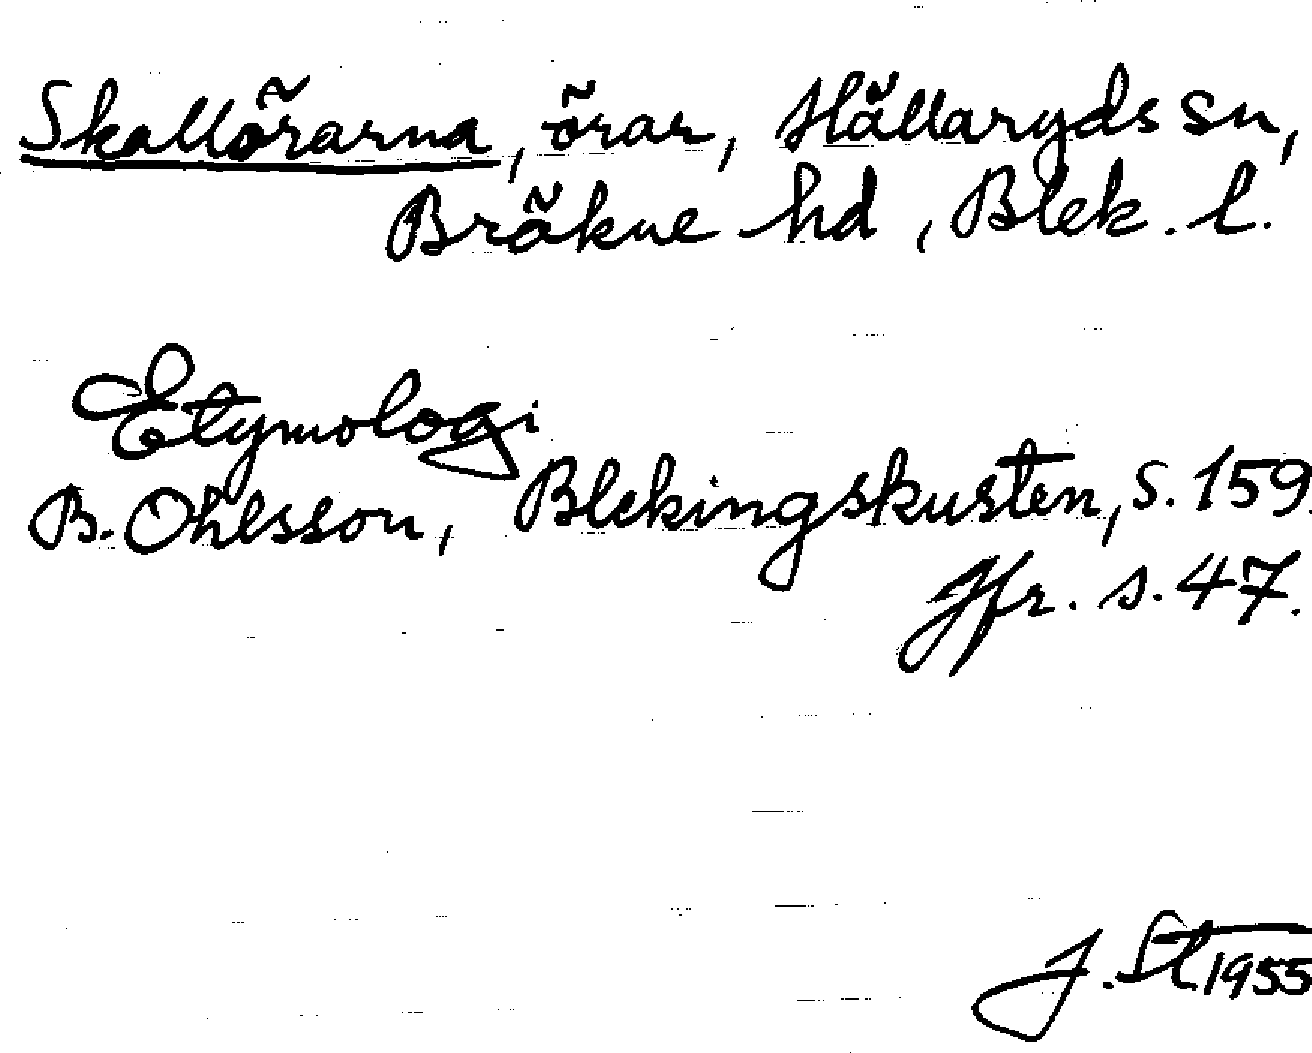 Skallörarna, örar, Hällaryds sn,
Bräkne hd, Blek. l.
Etymologi
B. Ohlsson, Blekingskusten, s. 159.
Jfr. s. 47.
J. St 1955